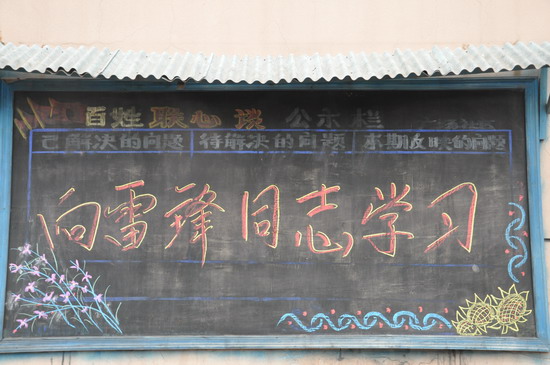 百姓联心谈 公示栏
已解决的问题 待解决的问题 本期反映的问题
向雷锋同志学习